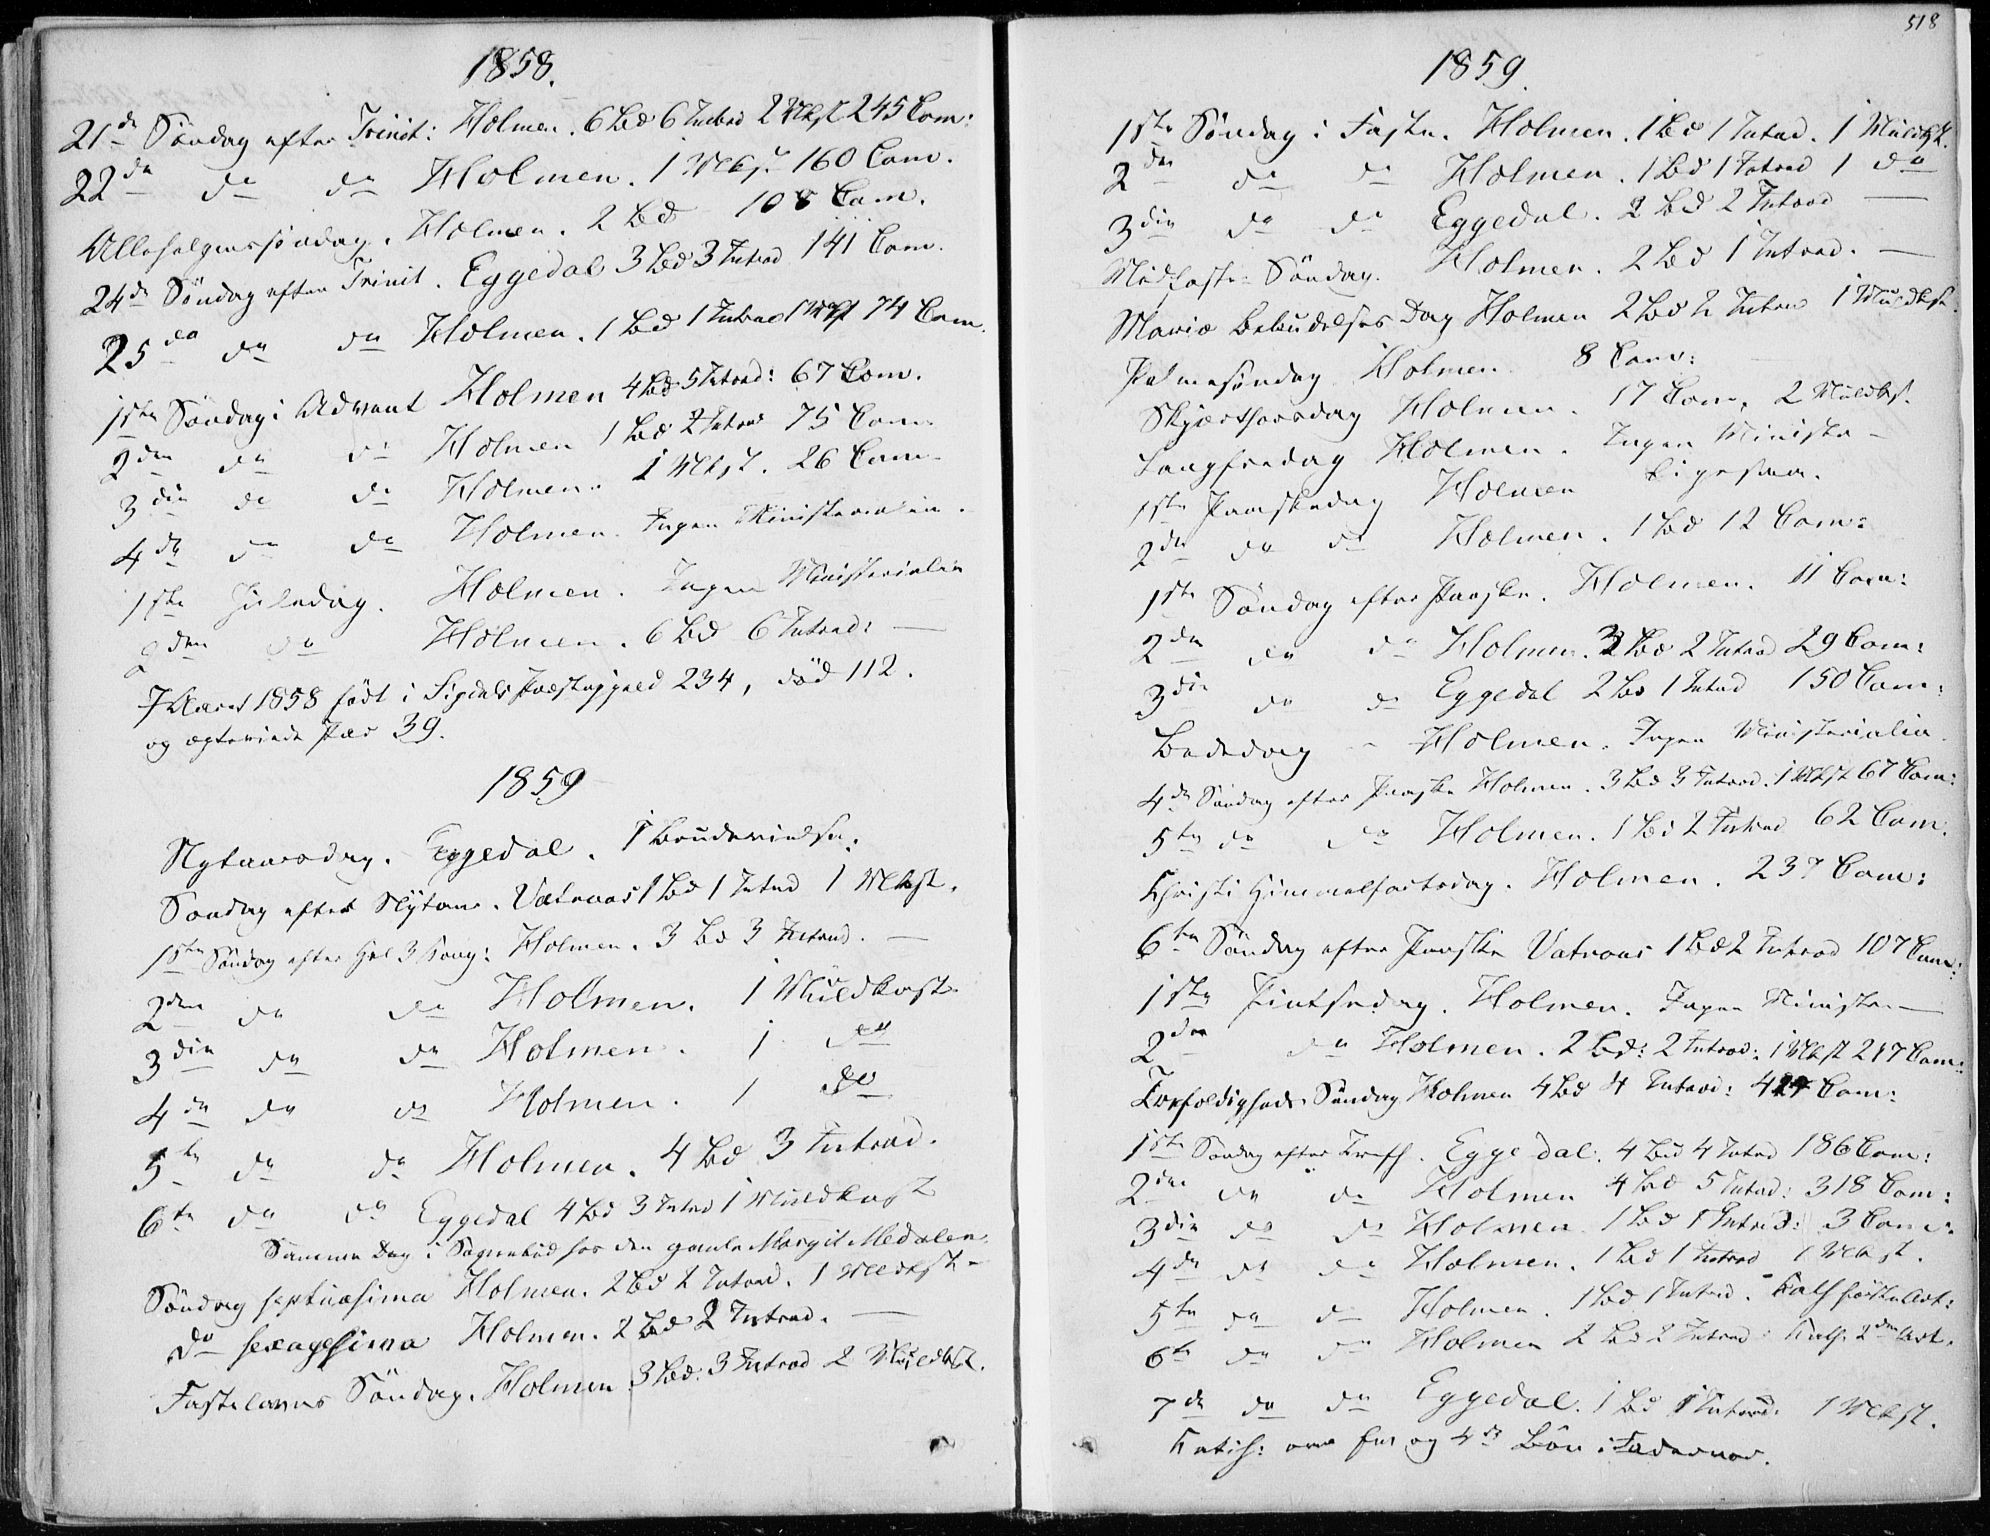 1858.
21de Søndag efter Trinit: Holmen. 6 Bd 6 Introd 2 Mkst 245 Com:
22de do do Holmen. 1 Mkst. 160 Com.
Allehelgenssøndag. Holmen. 2 Bd 108 Com.
24de Søndag efter Trinit. Eggedal 3 Bd 3 Introd 141 Com.
25de do do Holmen. 1 Bd 1 Introd 1 Mkst 74 Com.
1ste Søndag i Advent Holmen 4 Bd 5 Introd: 67 Com.
2den do do Holmen 1 Bd 2 Introd 75 Com.
3die do do Holmen. 1 Mkst. 26 Com.
4de do do Holmen. Ingen Ministerialia.
1ste Juledag. Holmen. Ingen Ministerialia
2den do Holmen. 6 Bd 6 Introd: —
I Aaret 1858 født i Sigdals Præstegjæld 234, død 112.
og ægteviede Par 39.
1859
Nytaarsdag. Eggedal. 1 Brudevielse.
Søndag efter Nytaar. Vatnaas 1 Bd 1 Introd 1 Mkst.
1ste Søndag efter Hel 3 Kong: Holmen. 3 Bd 3 Introd. —
2den do do Holmen. 1 Muldkast
3die do do Holmen. 1 do
4de do do Holmen. 1 do
5te do do Holmen. 4 Bd 3 Introd.
6te do do Eggedal 4 Bd 3 Introd 1 Muldkast
Samme Dag i Sognebud hos den gamle Margit Medalen
Søndag septuasima Holmen. 2 Bd 2 Introd. 1 Muldkst.
do sexagesima Holmen. 2 Bd 2 Introd. —
Fastelavns Søndag. Holmen 3 Bd. 3 Introd 2 Muldkst.
518
1859.
1ste Søndag i Faste. Holmen. 1 Bd 1 Introd. 1 Muldkst.
2den do do Holmen. 1 Bd 1 Introd 1 do
3die do do Eggedal. 2 Bd 2 Introd —
Midfaste Søndag. Holmen. 2 Bd 1 Introd. —
Mariæ Bebudelses Dag Holmen 2 Bd 2 Introd 1 Muldkst.
Palmesøndag Holmen 8 Com:
Skjærthorsdag Holmen. 17 Com. 2 Muldkst.
Langfredag Holmen. Ingen Ministe—
1ste Paaskedag Holmen Ligesaa.
2den do do Holmen. 1 Bd 12 Com:
1ste Søndag efter Paaske. Holmen. 11 Com:
2den do do Holmen. 3 Bd 2 Introd 29 Com:
3die do do Eggedal 2 Bd 1 Introd 150 Com:
Bededag — Holmen. Ingen Ministerialia.
4de Søndag efter Paaske Holmen. 3 Bd 3 Introd. 1 Mkst 67 Com:
5te do do Holmen. 1 Bd 2 Introd 62 Com.
Christi Himmelfartsdag. Holmen. 237 Com:
6te Søndag efter Paaske Vatnaas 1 Bd 2 Introd 107 Com:
1ste Pintsedag. Holmen. Ingen Ministe—
2den do Holmen. 2 Bd: 2 Introd: 1 Mkst 217 Com:
Trefoldigheds Søndag Holmen 4 Bd 4 Introd: 424 Com:
1ste Søndag efter Treff. Eggedal. 4 Bd 4 Introd 186 Com:
2den do do Holmen 4 Bd 5 Introd: 318 Com:
3die do do Holmen 1 Bd 1 Introd: 3 Com:
4de do do Holmen. 1 Bd 1 Introd 1 Mkst.
5te do do Holmen. 1 Bd 1 Introd. Kath første Art:
6te do do Holmen 2 Bd 2 Introd: Kath. 2den Art.
7de do do Eggedal. 1 Bd 1 Introd. 1 Mkst.
Katish: over og 4de Bøn i Fadervor.